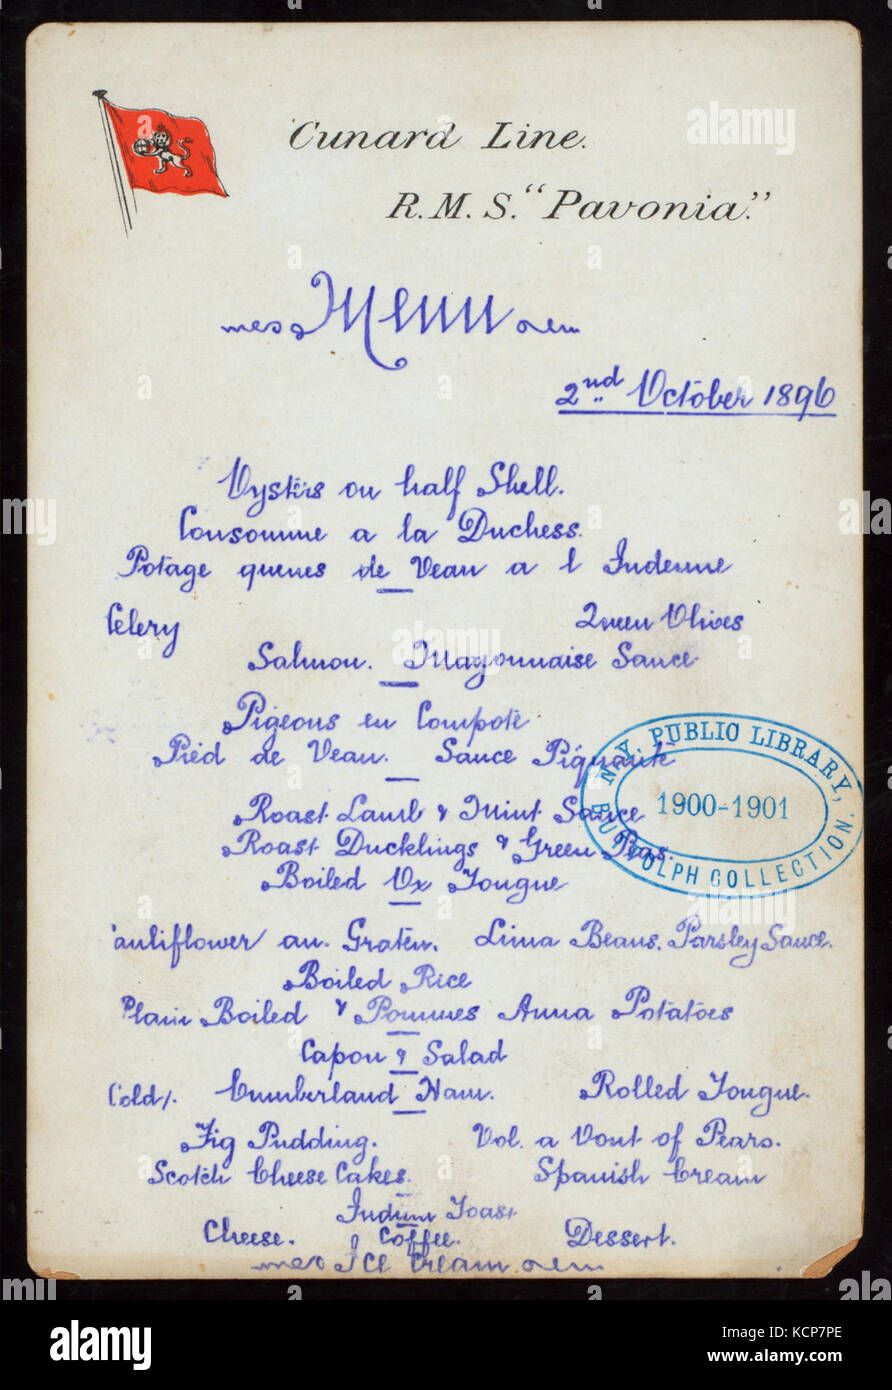 Cunard Line.
R.M.S. "Pavonia."
Menu
2nd October 1896
Oysters on half Shell.
Consomme a la Duchess.
Potage queues de Veau a l Indenne
Celery Queen Olives
Salmon. Mayonnaise Sauce
Pigeons en Compote
Pied de Veau. Sauce Piquante
Roast Lamb & Mint Sauce
Roast Ducklings & Green Peas.
Boiled Ox Tongue
N.Y. PUBLIC LIBRARY,
1900-1901
BUTTOLPH COLLECTION.
Cauliflower au. Graten. Lima Beans. Parsley Sauce.
Boiled Rice
Plain Boiled & Pommes Anna Potatoes
Capon & Salad
Cold/. Cumberland Ham. Rolled Tongue.
Fig Pudding. Vol. a Vont of Pears.
Scotch Cheese Cakes. Spanish Cream
Indian Toast
Cheese. Coffee. Dessert.
Ice Cream
alamy
Image ID: KCP7PE
www.alamy.com